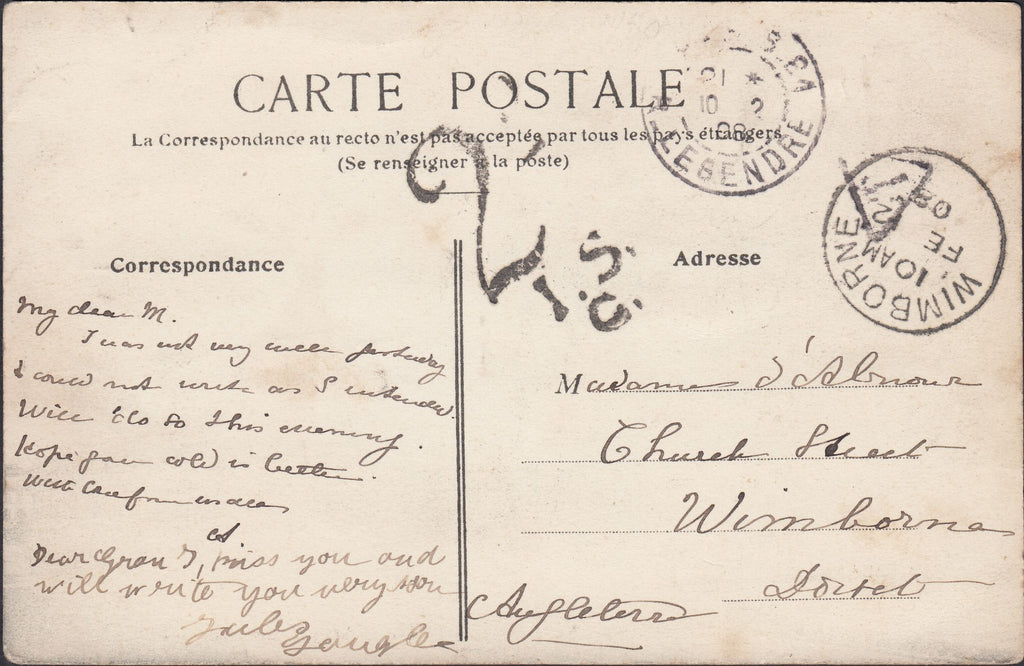 CARTE POSTALE
La Correspondance au recto n'est pas acceptée par tous les pays étrangers
(Se renseigner à la poste)
21 *
10 2
08
LEGENDRE
WIMBORNE
10 AM
FE
08
Correspondance
Adresse
My dear M.
I was not very well yesterday
& could not write as I intended.
Will do so this evening.
Hope your cold is better.
With love from
Dear Gran I, miss you and
will write you very soon
Madame d'Albnour
Church Street
Wimborne
Dorset
Angleterre